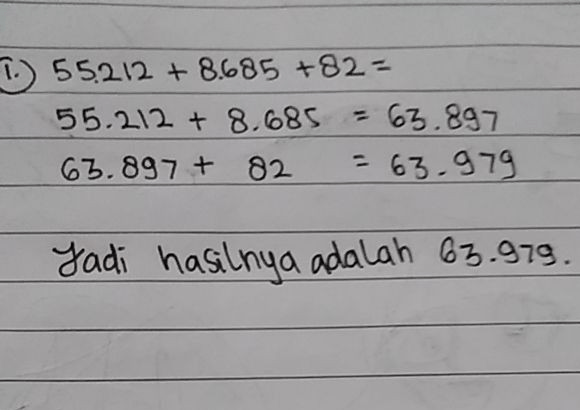 1.) 55.212 + 8.685 + 82 =
55.212 + 8.685 = 63.897
63.897 + 82 = 63.979
Jadi hasilnya adalah 63.979.